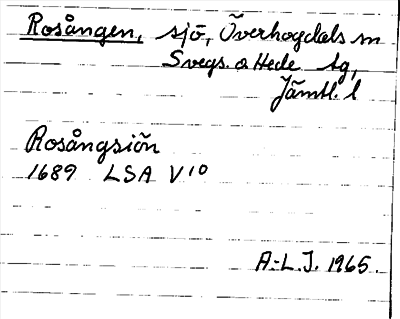 Rosången, sjö, Överhogdals sn
Svegs. o Hede tg,
Jämtl. l
Rosångsiön
1689 LSA V10
A.-L.J. 1965.